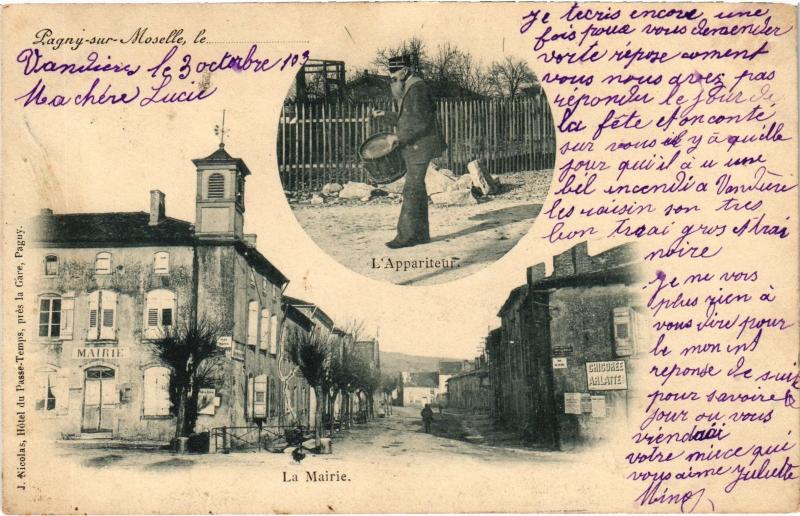 Pagny-sur-Moselle, le
Vandières le 3 octobre 103
Ma chère Lucie
je tecris encore une
fois pour vous demender
votre réponse coment
vous nous avez pas
répondu le jour de
la fête et on conté
sur vous il y a quelle
jour qu'il à u une
bél incendi a Vandière
les raisin son tres
bon trai gros et trai
noire
Je ne vois
plus rien à
vous dire pour
le moment
reponse de suit
pour savoire le
jour ou vous
viendrai
votre niece qui
vous aime Juliette
L'Appariteur.
MAIRIE
CHICORÉE
ARLATTE
La Mairie.
J. Nicolas, Hôtel du Passe-Temps, près la Gare, Pagny.